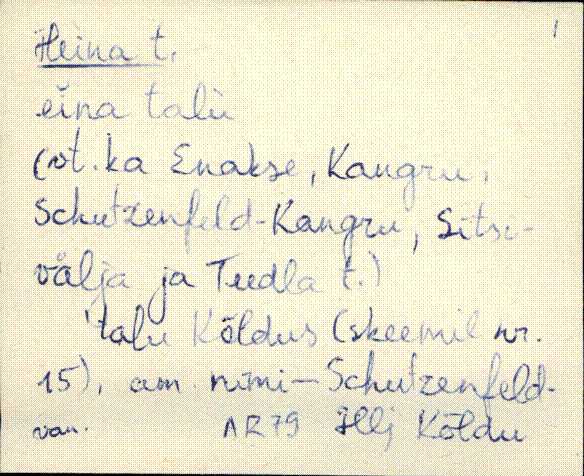 1
Heina t.
eina talu
(vt. ka Enakse, Kangru,
Schutzenfeld-Kangru, Sitsi-
välja ja Teedla t.)
'talu Kõldus (skeemil nr.
15), am. nimi - Schutzenfeld-
van. AR79 Illj Kõldu